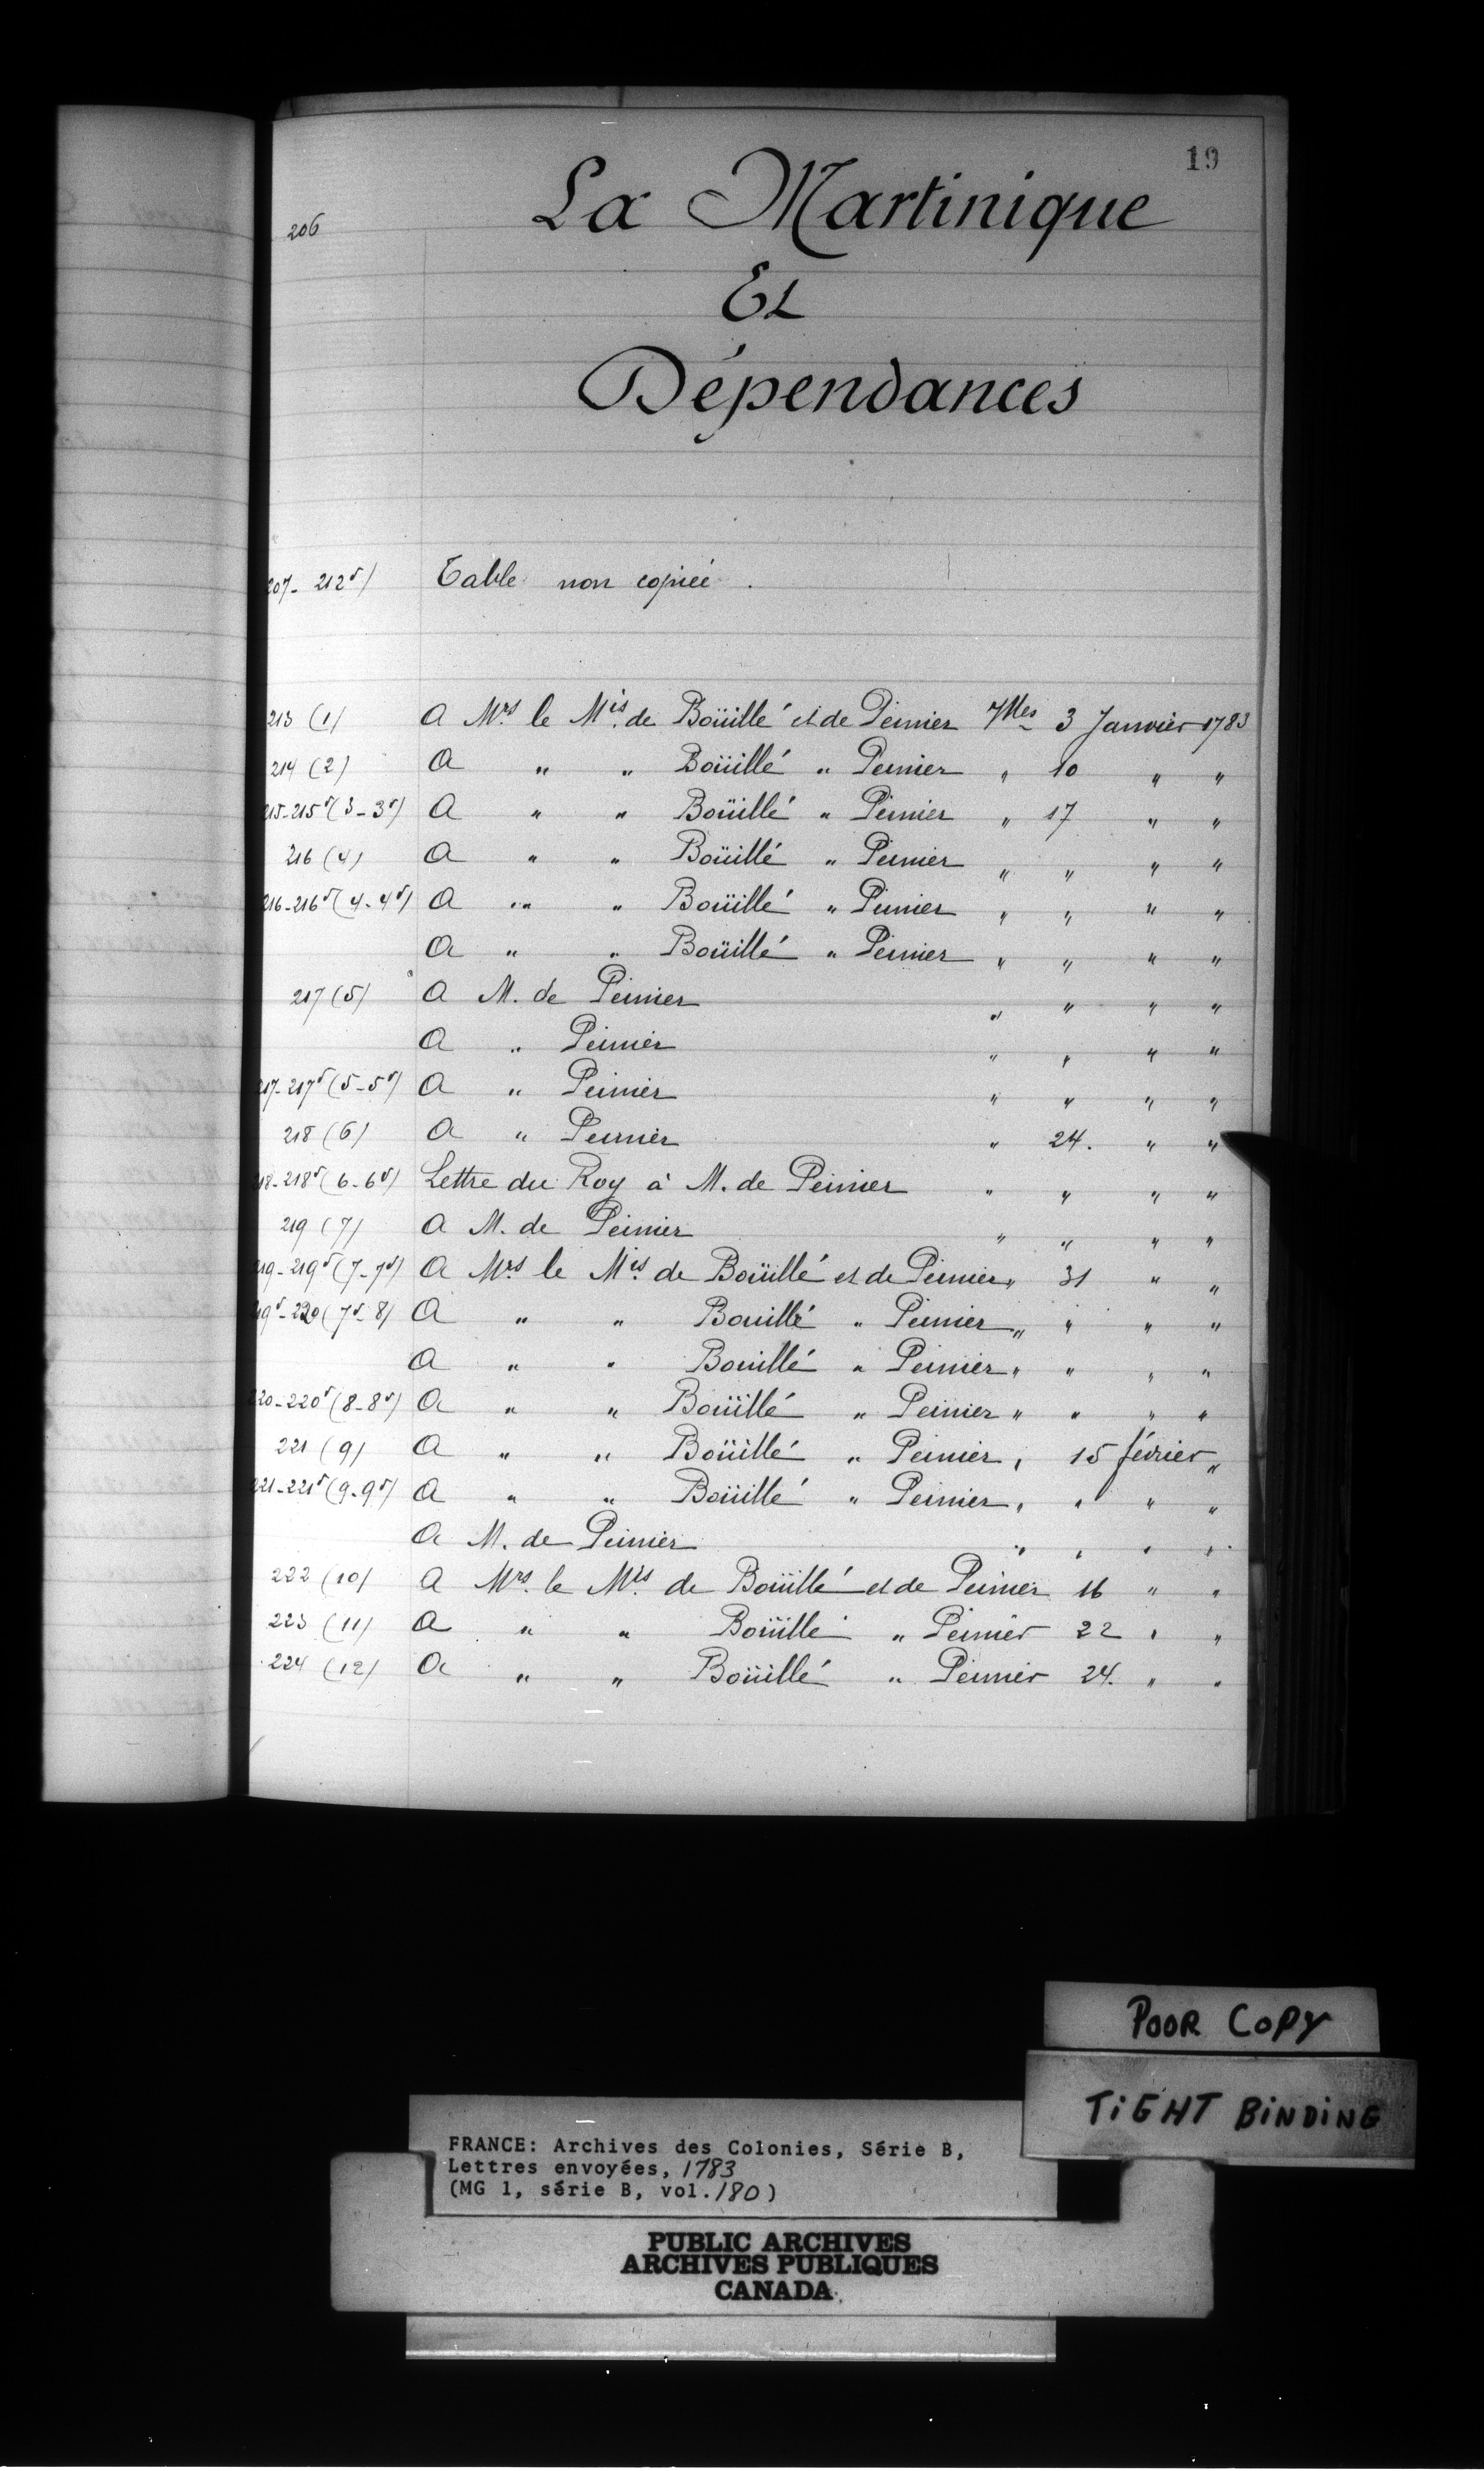 19
206 La Martinique
Et
Dépendances
207-212v) Table non copiée.
213 (1) A Mrs le Mis. de Boüillé et de Peinier Vlles 3 Janvier 1783
214 (2) A " " Boüillé " Peinier " 10 " "
215-215v (3-3v) A " " Boüillé " Peinier " 17 " "
216 (4) A " " Boüillé " Peinier " " " "
216-216v (4-4v) A " " Boüillé " Peinier " " " "
A " " Boüillé " Peinier " " " "
217 (5) A M. de Peinier " " " "
A " Peinier " " " "
217-217v (5-5v) A " Peinier " " " "
218 (6) A " Peinier " 24. " "
218-218v (6-6v) Lettre du Roy à M. de Peinier " " " "
219 (7) A M. de Peinier " " " "
219-219v (7-7v) A Mrs le Mis. de Boüillé et de Peinier " 31 " "
219v-220 (7v-8) A " " Bouillé " Peinier " " " "
A " " Bouillé " Peinier " " " "
220-220v (8-8v) A " " Boüillé " Peinier " " " "
221 (9) A " " Boüillé " Peinier " 15 février "
221-221v (9-9v) A " " Boüillé " Peinier " " " "
A M. de Peinier " " " "
222 (10) A Mrs. le Mis de Boüillé et de Peinier 16 " "
223 (11) A " " Boüillé " Peinier 22 " "
224 (12) A " " Boüillé " Peinier 24. " "
POOR COPY
TiGHT BiNDiNG
FRANCE: Archives des Colonies, Série B,
Lettres envoyées, 1783
(MG 1, série B, vol. 180)
PUBLIC ARCHIVES
ARCHIVES PUBLIQUES
CANADA